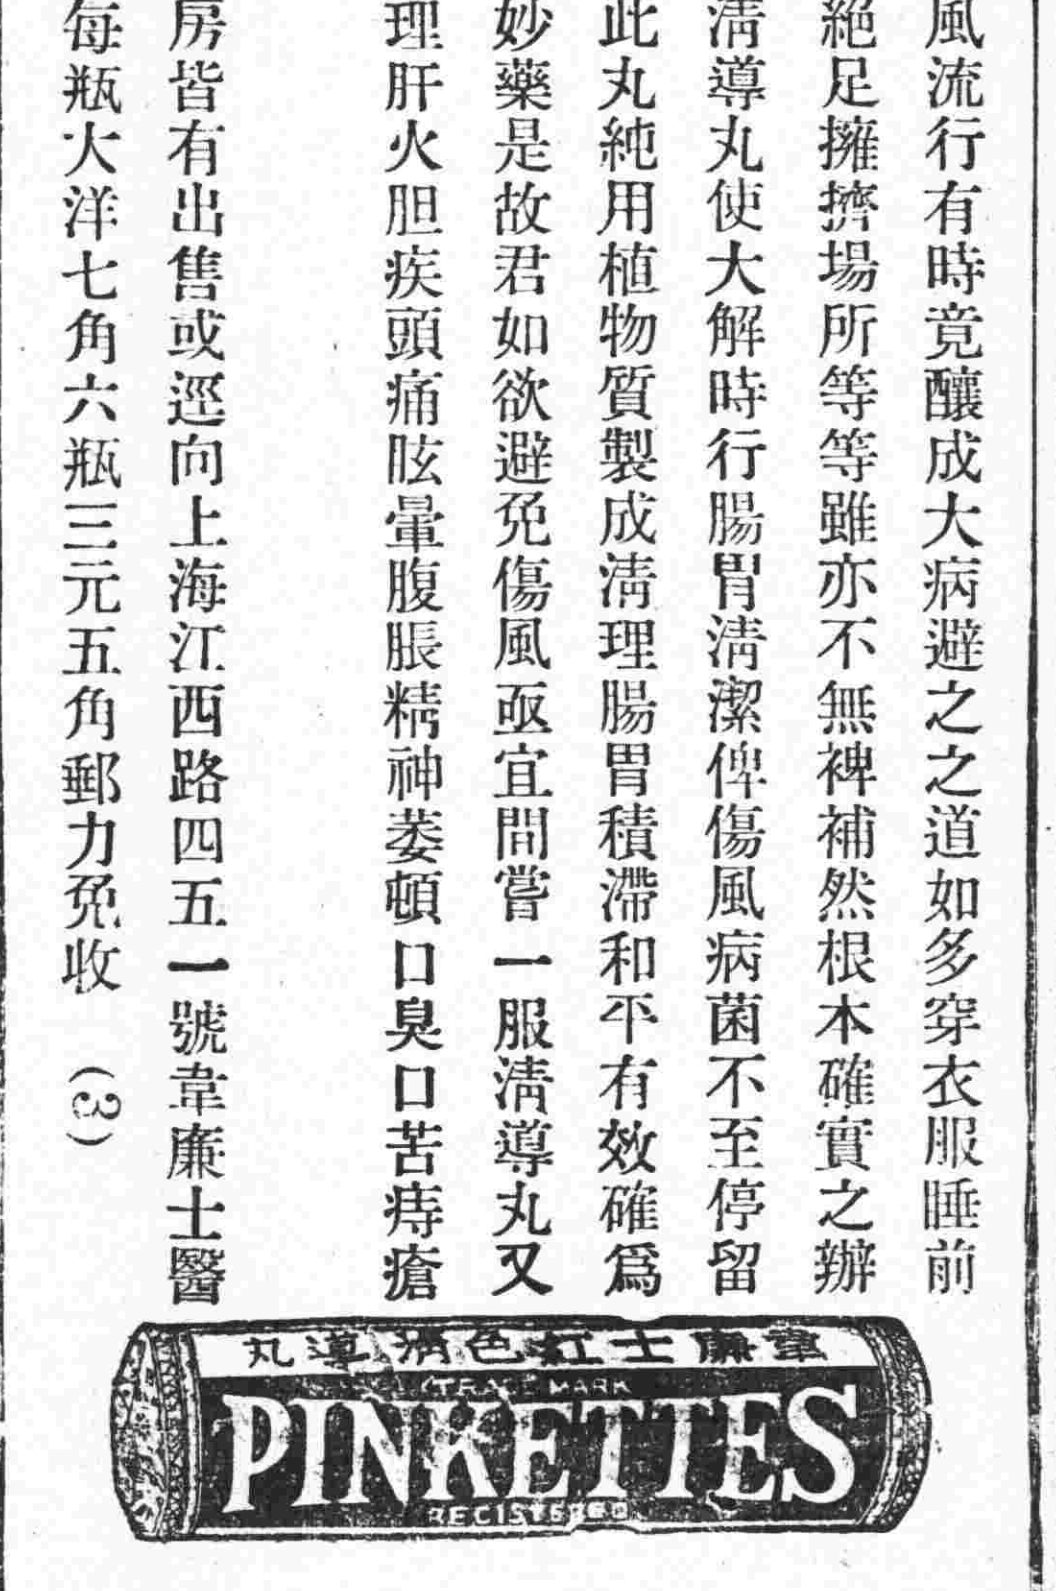 風流行有時竟釀成大病避之之道如多穿衣服睡前
絕足擁擠場所等等雖亦不無裨補然根本確實之辦
淸導丸使大解時行腸胃淸潔俾傷風病菌不至停留
此丸純用植物質製成淸理腸胃積滯和平有效確爲
妙藥是故君如欲避免傷風亟宜間嘗一服淸導丸又
理肝火胆疾頭痛眩暈腹脹精神萎頓口臭口苦痔瘡
房皆有出售或逕向上海江西路四五一號韋廉士醫
每瓶大洋七角六瓶三元五角郵力免收 (3)
韋廉士紅色淸導丸
TRADE MARK
PINKETTES
REGISTERED